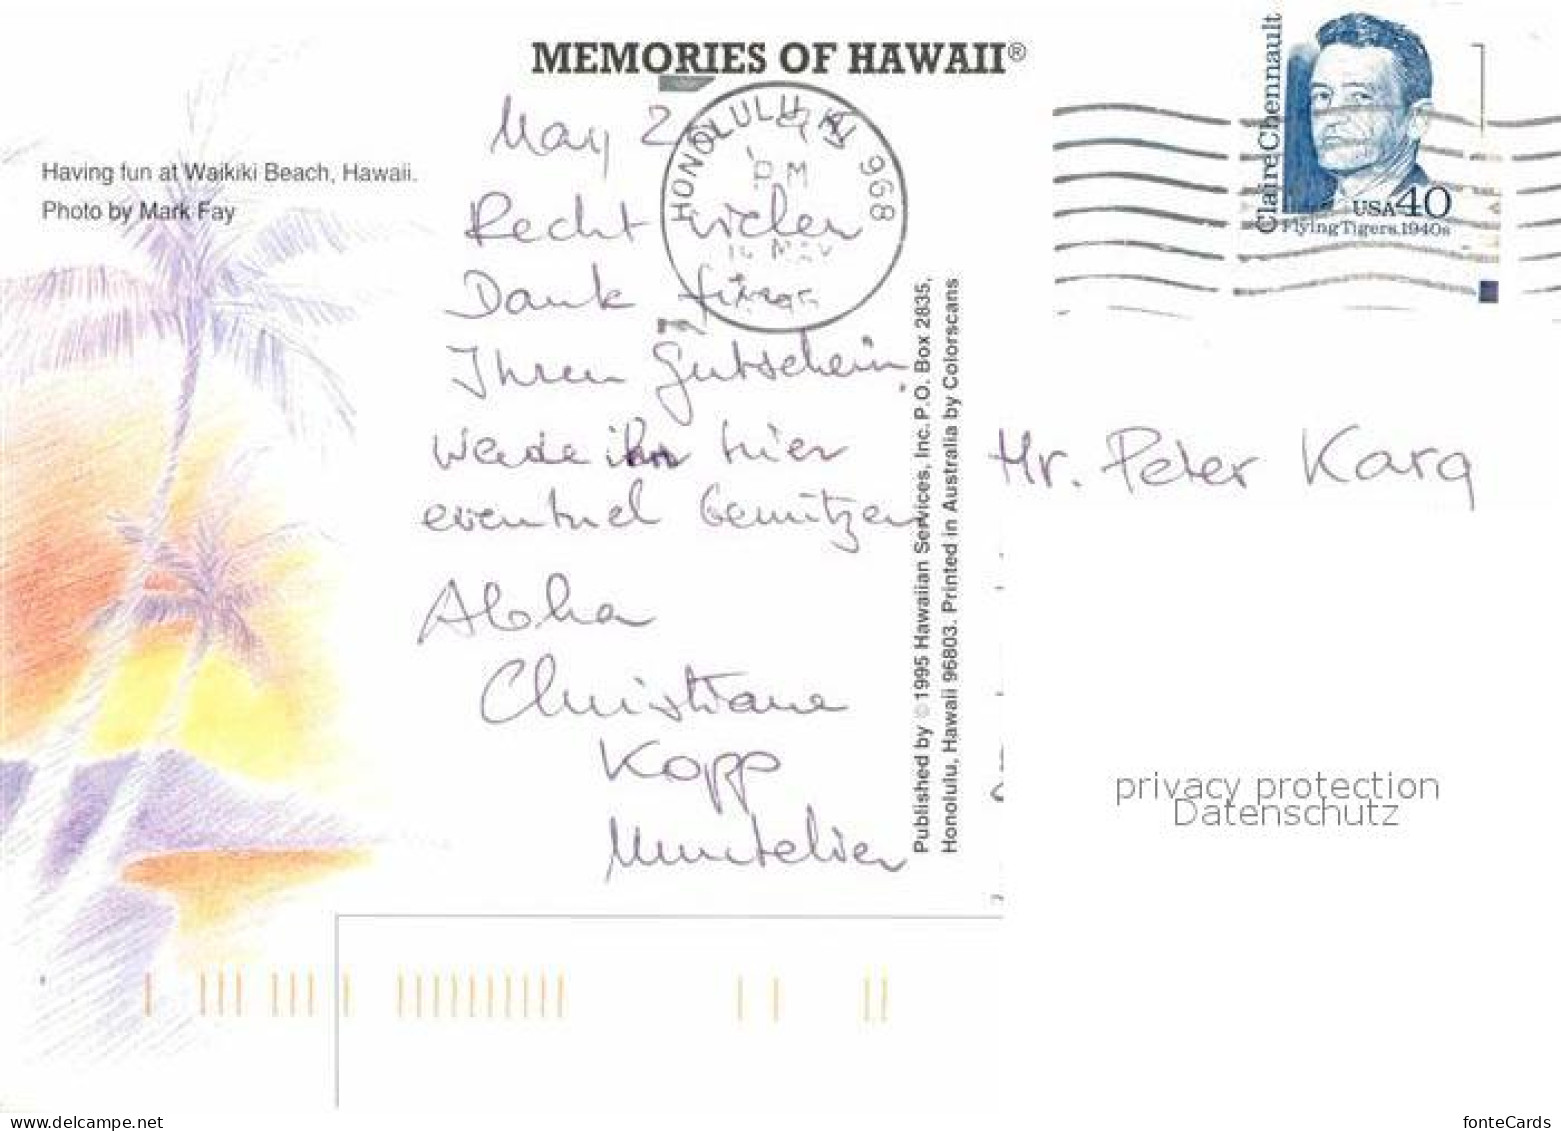 MEMORIES OF HAWAII®
Having fun at Waikiki Beach, Hawaii.
Photo by Mark Fay
May 2
Recht vielen
Dank für
Ihren Gutschein,
werde ihn hier
eventuel benützen
Aloha
Christiane
Kopp
Muntelier
HONOLULU HI 968
PM
Published by © 1995 Hawaiian Services, Inc. P.O. Box 2835,
Honolulu, Hawaii 96803. Printed in Australia by Colorscans
Claire Chennault
USA 40
Flying Tigers, 1940s
Mr. Peter Karg
privacy protection
Datenschutz
www.delcampe.net
fonteCards